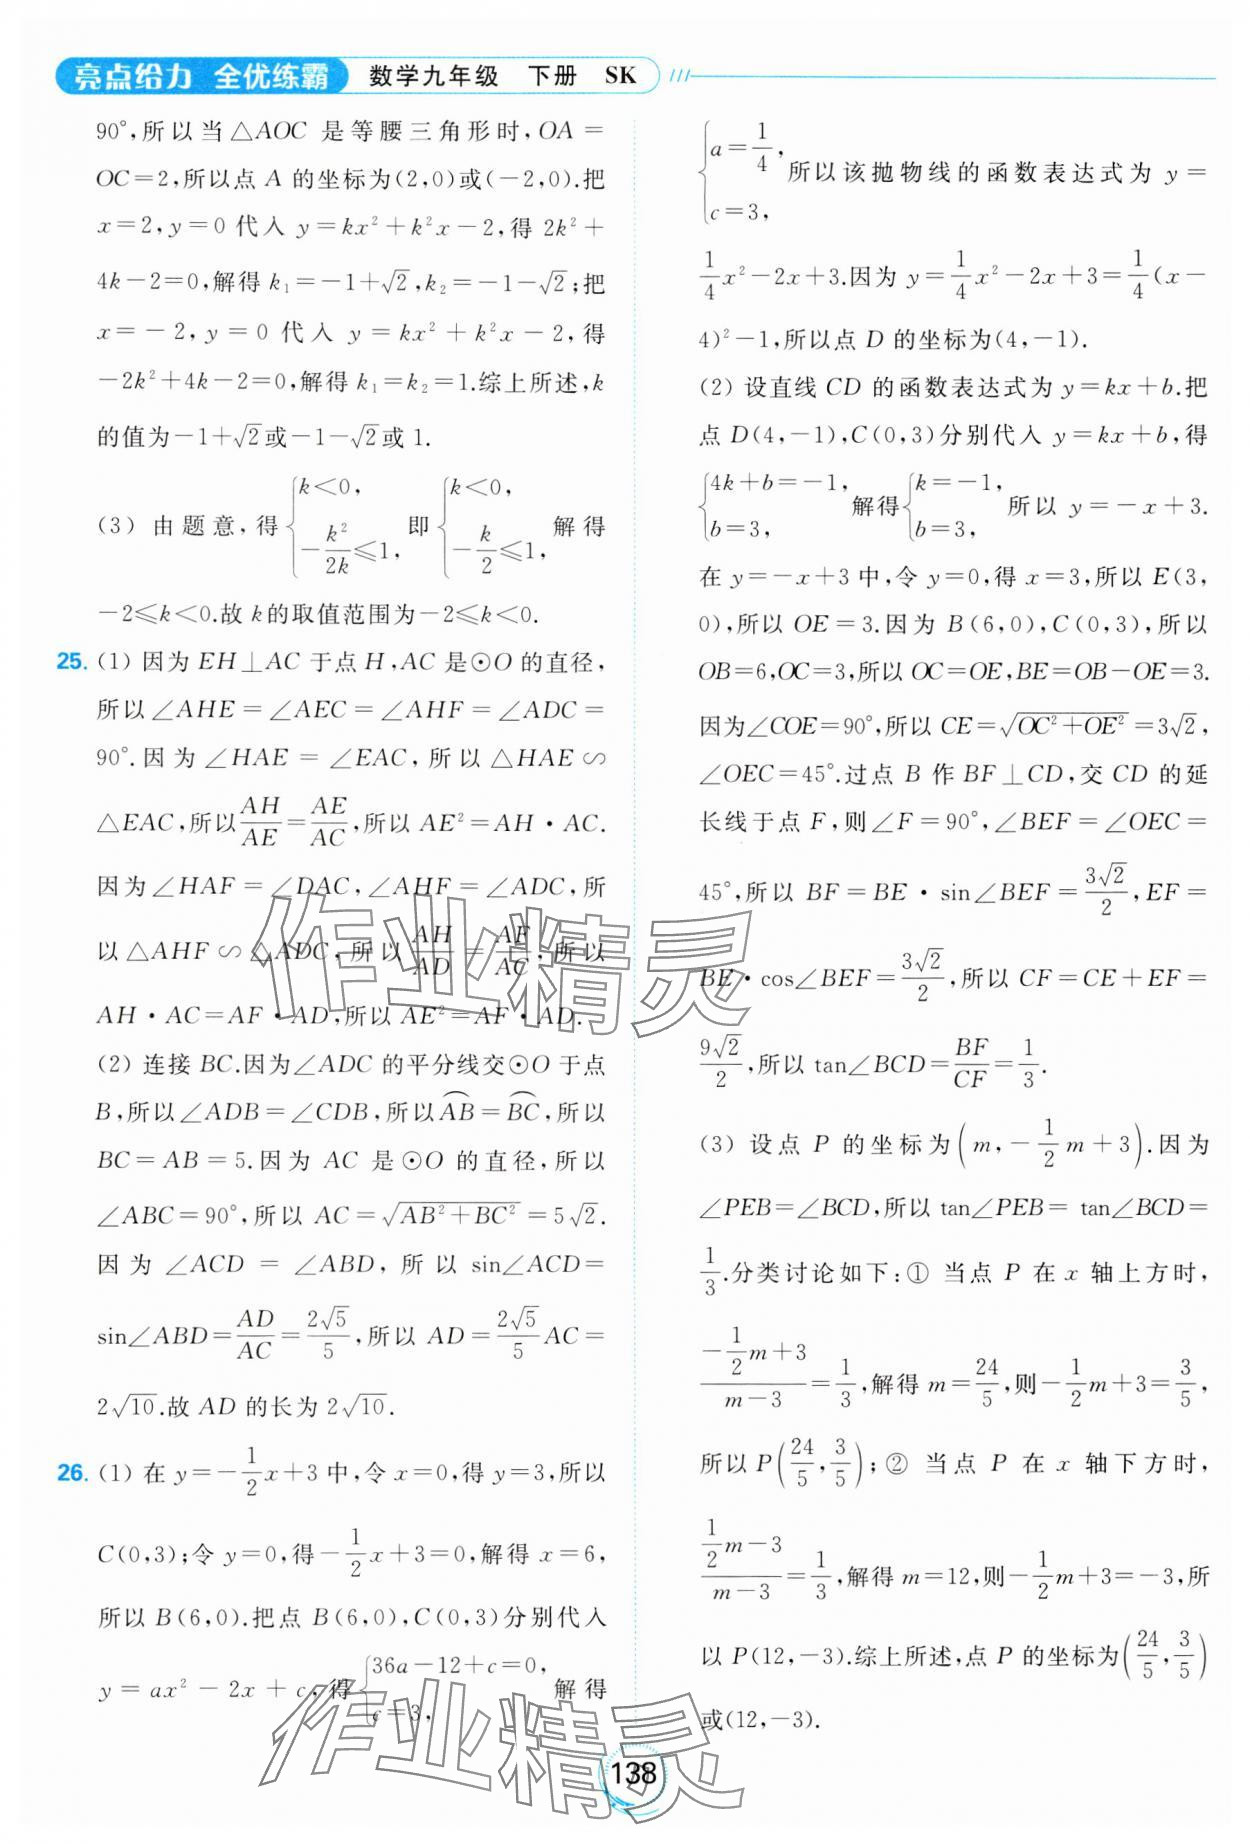 亮点给力 全优练霸 数学九年级 下册 SK
90°,所以当△AOC 是等腰三角形时,OA=
OC=2,所以点 A 的坐标为(2,0)或(-2,0).把
x=2,y=0 代入 y=kx²+k²x-2,得 2k²+
4k-2=0,解得 k₁=-1+√2,k₂=-1-√2;把
x=-2,y=0 代入 y=kx²+k²x-2,得
-2k²+4k-2=0,解得 k₁=k₂=1.综上所述,k
的值为-1+√2或-1-√2或 1.
(3) 由题意,得{k<0, -k²/2k≤1, 即{k<0, -k/2≤1, 解得
-2≤k<0.故 k的取值范围为-2≤k<0.
25. (1) 因为 EH⊥AC 于点 H,AC 是⊙O 的直径,
所以∠AHE=∠AEC=∠AHF=∠ADC=
90°.因为∠HAE=∠EAC,所以△HAE∽
△EAC,所以AH/AE=AE/AC,所以 AE²=AH·AC.
因为∠HAF=∠DAC,∠AHF=∠ADC,所
以△AHF∽△ADC,所以AH/AD=AF/AC,所以
AH·AC=AF·AD,所以 AE²=AF·AD.
(2) 连接 BC.因为∠ADC 的平分线交⊙O 于点
B,所以∠ADB=∠CDB,所以⌒AB=⌒BC,所以
BC=AB=5.因为 AC 是⊙O 的直径,所以
∠ABC=90°,所以 AC=√(AB²+BC²)=5√2.
因为∠ACD=∠ABD,所以 sin∠ACD=
sin∠ABD=AD/AC=2√5/5,所以 AD=2√5/5AC=
2√10.故 AD 的长为 2√10.
26. (1) 在 y=-1/2x+3 中,令 x=0,得 y=3,所以
C(0,3);令 y=0,得-1/2x+3=0,解得 x=6,
所以 B(6,0).把点 B(6,0),C(0,3)分别代入
y=ax²-2x+c,得{36a-12+c=0, c=3, 解得
{a=1/4, c=3, 所以该抛物线的函数表达式为 y=
1/4x²-2x+3.因为 y=1/4x²-2x+3=1/4(x-
4)²-1,所以点 D 的坐标为(4,-1).
(2) 设直线 CD 的函数表达式为 y=kx+b.把
点 D(4,-1),C(0,3)分别代入 y=kx+b,得
{4k+b=-1, b=3, 解得{k=-1, b=3, 所以 y=-x+3.
在 y=-x+3 中,令 y=0,得 x=3,所以 E(3,
0),所以 OE=3.因为 B(6,0),C(0,3),所以
OB=6,OC=3,所以 OC=OE,BE=OB-OE=3.
因为∠COE=90°,所以 CE=√(OC²+OE²)=3√2,
∠OEC=45°.过点 B 作 BF⊥CD,交 CD 的延
长线于点 F,则∠F=90°,∠BEF=∠OEC=
45°,所以 BF=BE·sin∠BEF=3√2/2,EF=
BE·cos∠BEF=3√2/2,所以 CF=CE+EF=
9√2/2,所以 tan∠BCD=BF/CF=1/3.
(3) 设点 P 的坐标为(m,-1/2m+3).因为
∠PEB=∠BCD,所以 tan∠PEB= tan∠BCD=
1/3.分类讨论如下:① 当点 P 在 x 轴上方时,
(-1/2m+3)/(m-3)=1/3,解得 m=24/5,则-1/2m+3=3/5,
所以 P(24/5,3/5);② 当点 P 在 x 轴下方时,
(1/2m-3)/(m-3)=1/3,解得 m=12,则-1/2m+3=-3,所
以 P(12,-3).综上所述,点 P 的坐标为(24/5,3/5)
或(12,-3).
作业精灵
作业精灵
138